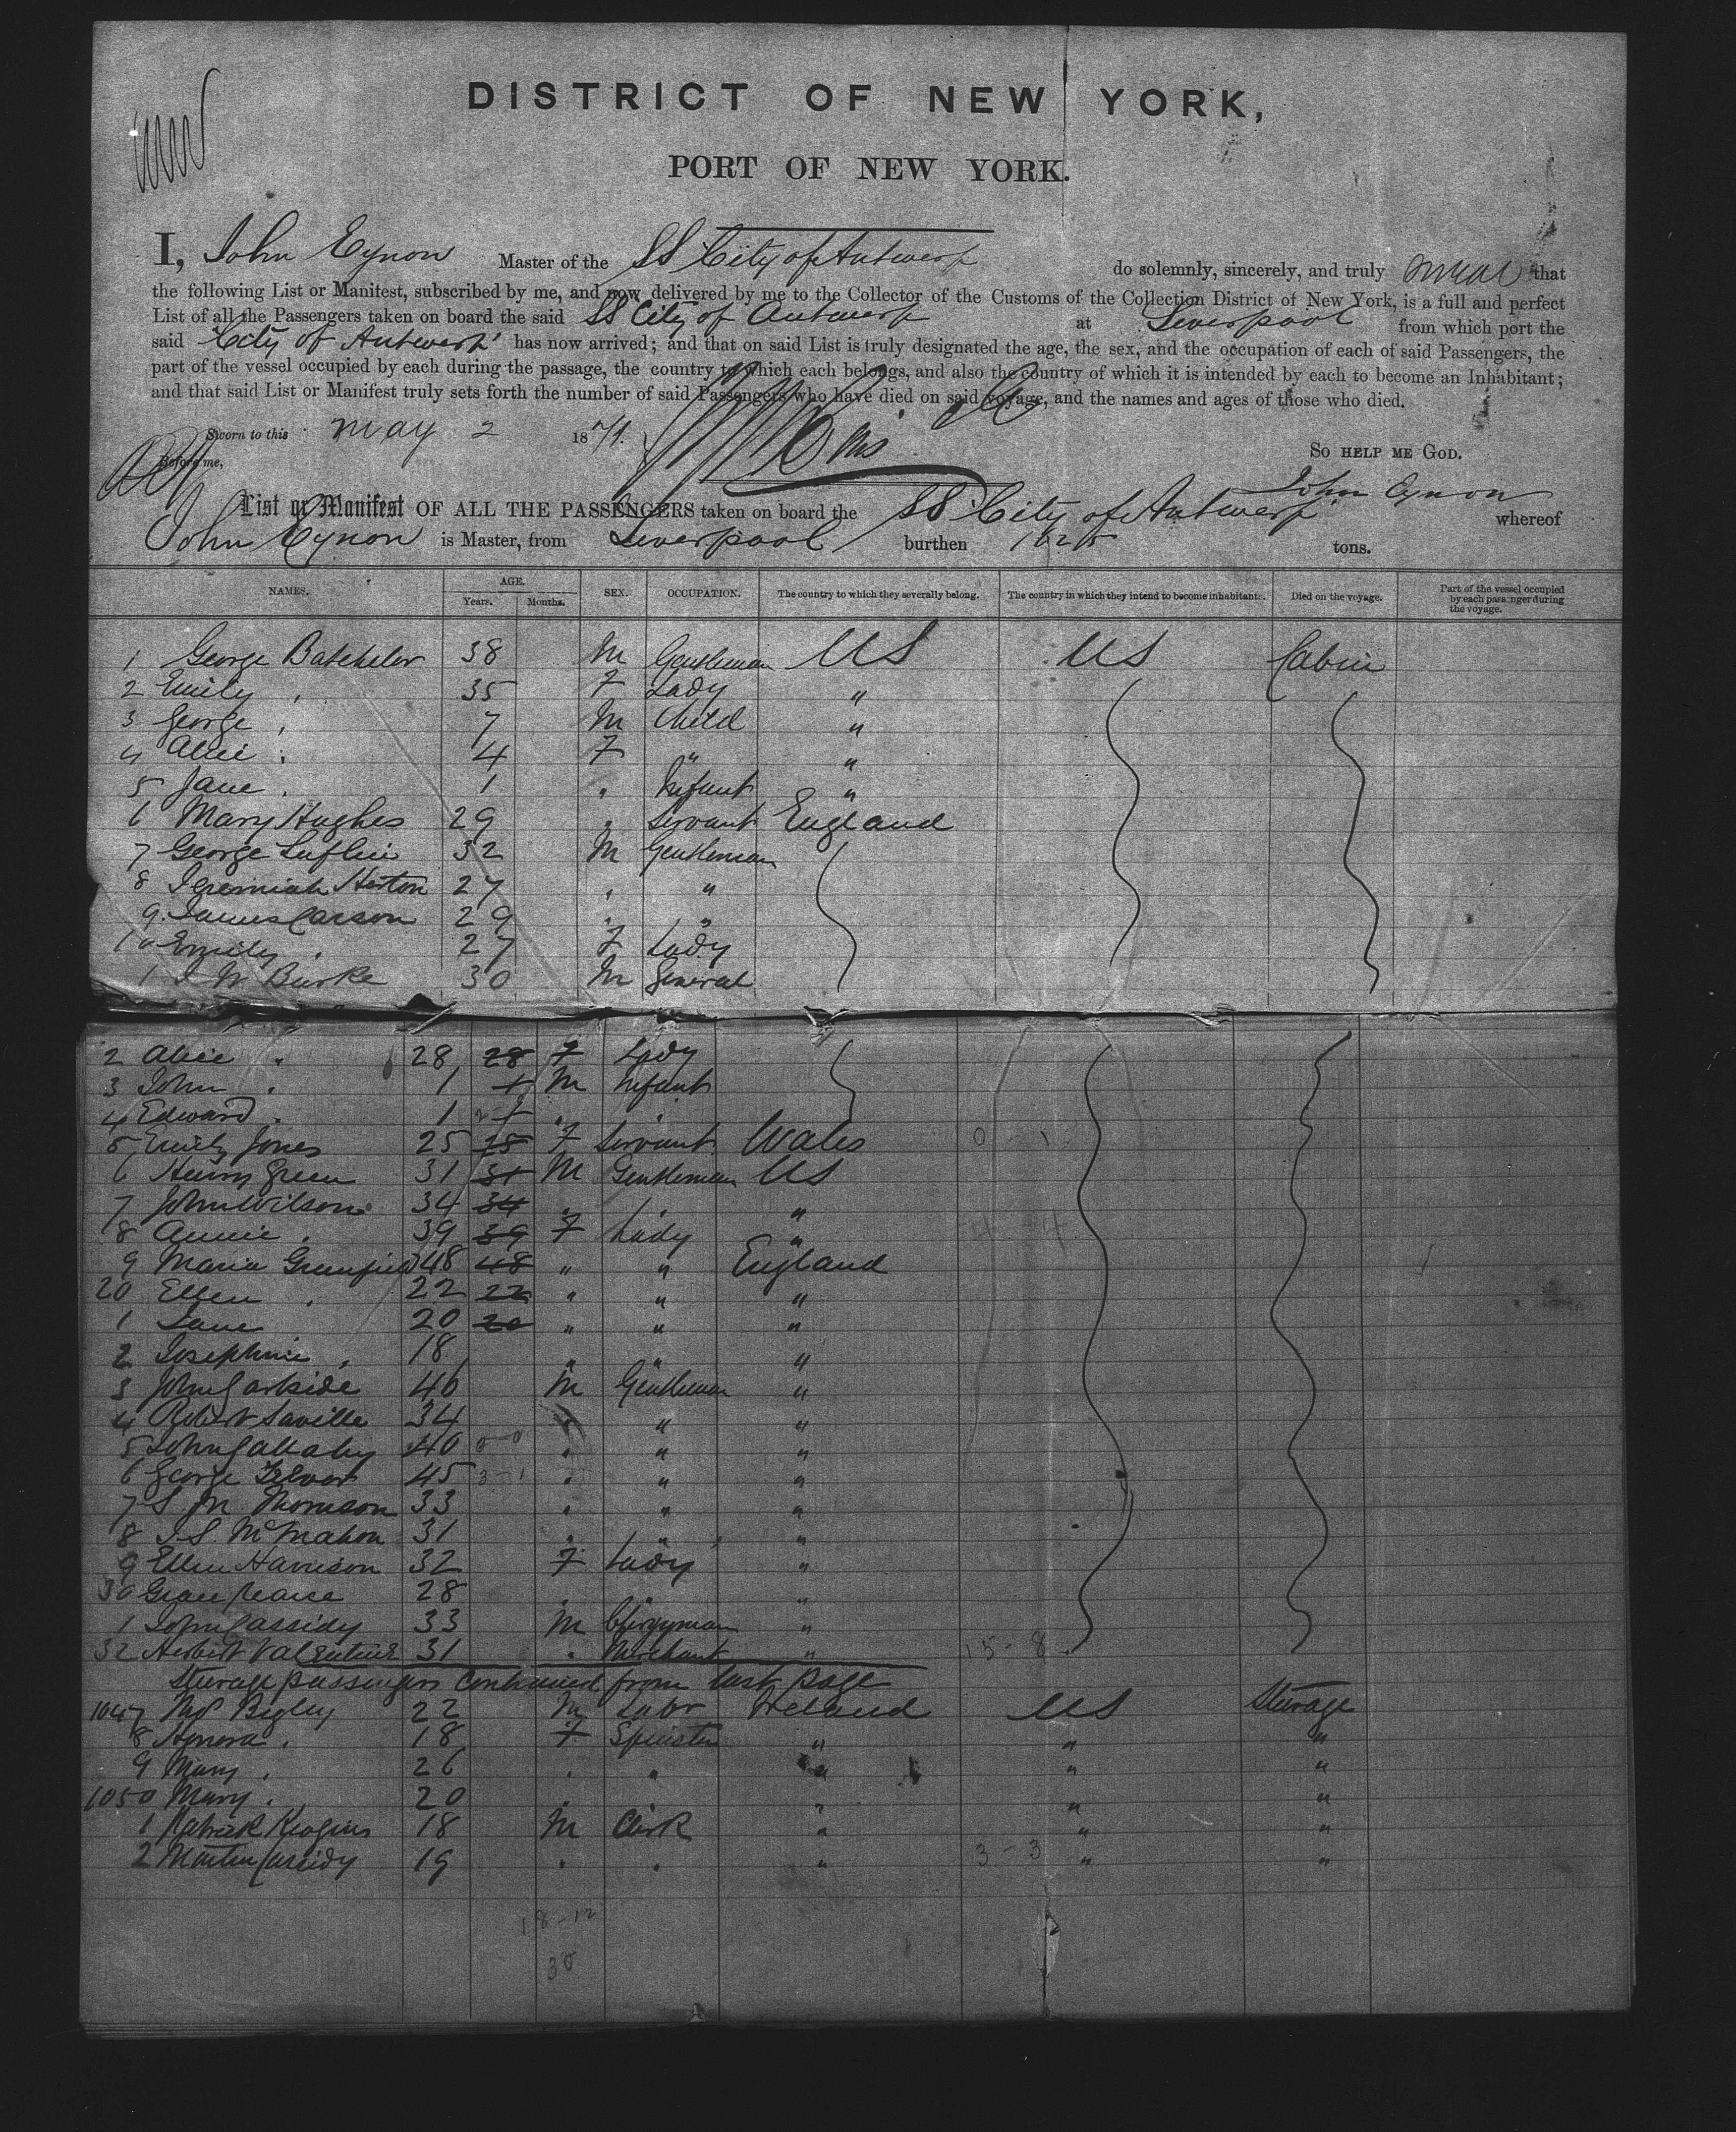 DISTRICT OF NEW YORK,
PORT OF NEW YORK.
I, John Eynon Master of the SS City of Antwerp do solemnly, sincerely, and truly swear that
the following List or Manifest, subscribed by me, and now delivered by me to the Collector of the Customs of the Collection District of New York, is a full and perfect
List of all the Passengers taken on board the said SS City of Antwerp at Liverpool from which port the
said "City of Antwerp" has now arrived; and that on said List is truly designated the age, the sex, and the occupation of each of said Passengers, the
part of the vessel occupied by each during the passage, the country to which each belongs, and also the country of which it is intended by each to become an Inhabitant;
and that said List or Manifest truly sets forth the number of said Passengers who have died on said voyage, and the names and ages of those who died.
Sworn to this May 2 1871.
So HELP ME GOD.
Before me,
John Eynon
List or Manifest OF ALL THE PASSENGERS taken on board the SS "City of Antwerp" whereof
John Eynon is Master, from Liverpool burthen 1625 tons.
NAMES. AGE. SEX. OCCUPATION. The country to which they severally belong. The country in which they intend to become inhabitants. Died on the voyage. Part of the vessel occupied by each passenger during the voyage.
Years. Months.
1 George Batchelor 38 M Gentleman US US Cabin
2 Emily " 35 F Lady "
3 George " 7 M Child "
4 Alice " 4 F " "
5 Jane " 1 " Infant "
6 Mary Hughes 29 " Servant England
7 George Luflin 32 M Gentleman
8 Jeremiah Horton 27 " "
9 James Carson 29 " "
10 Emily " 27 F Lady
1 J W Burke 30 M General
2 Alice " 28 28 F Lady
3 John " 1 1 M Infant
4 Edward " 1 1 "
5 Emily Jones 25 25 F Servant Wales
6 Henry Green 31 31 M Gentleman US
7 John Wilson 34 34 " " "
8 Annie " 39 39 F Lady "
9 Maria Greenfield 48 48 " " England
20 Ellen " 22 22 " " "
1 Jane 20 20 " " "
2 Josephine " 18 " " "
3 John Garside 46 M Gentleman "
4 Robert Saville 34 " " "
5 John Gallaby 40 " " "
6 George 45 " " "
7 S. M. Thomson 33 " " "
8 J. S. McMahon 31 " " "
9 Ellen Harrison 32 F Lady "
30 Grace Pearce 28 " " "
1 John Cassidy 33 M Clergyman "
32 Herbert Valentine 31 " Merchant " 15-8
Steerage passengers continued from last page
1047 Begley 22 M Labr Ireland US Steerage
8 Honora " 18 F Spinster " " "
9 Mary " 26 " " " " "
1050 Mary " 20 " " " " "
1 Patrick Keogins 18 M Clerk " " "
2 Martin Cassidy 19 " " " 3-3 " "
18-12
30